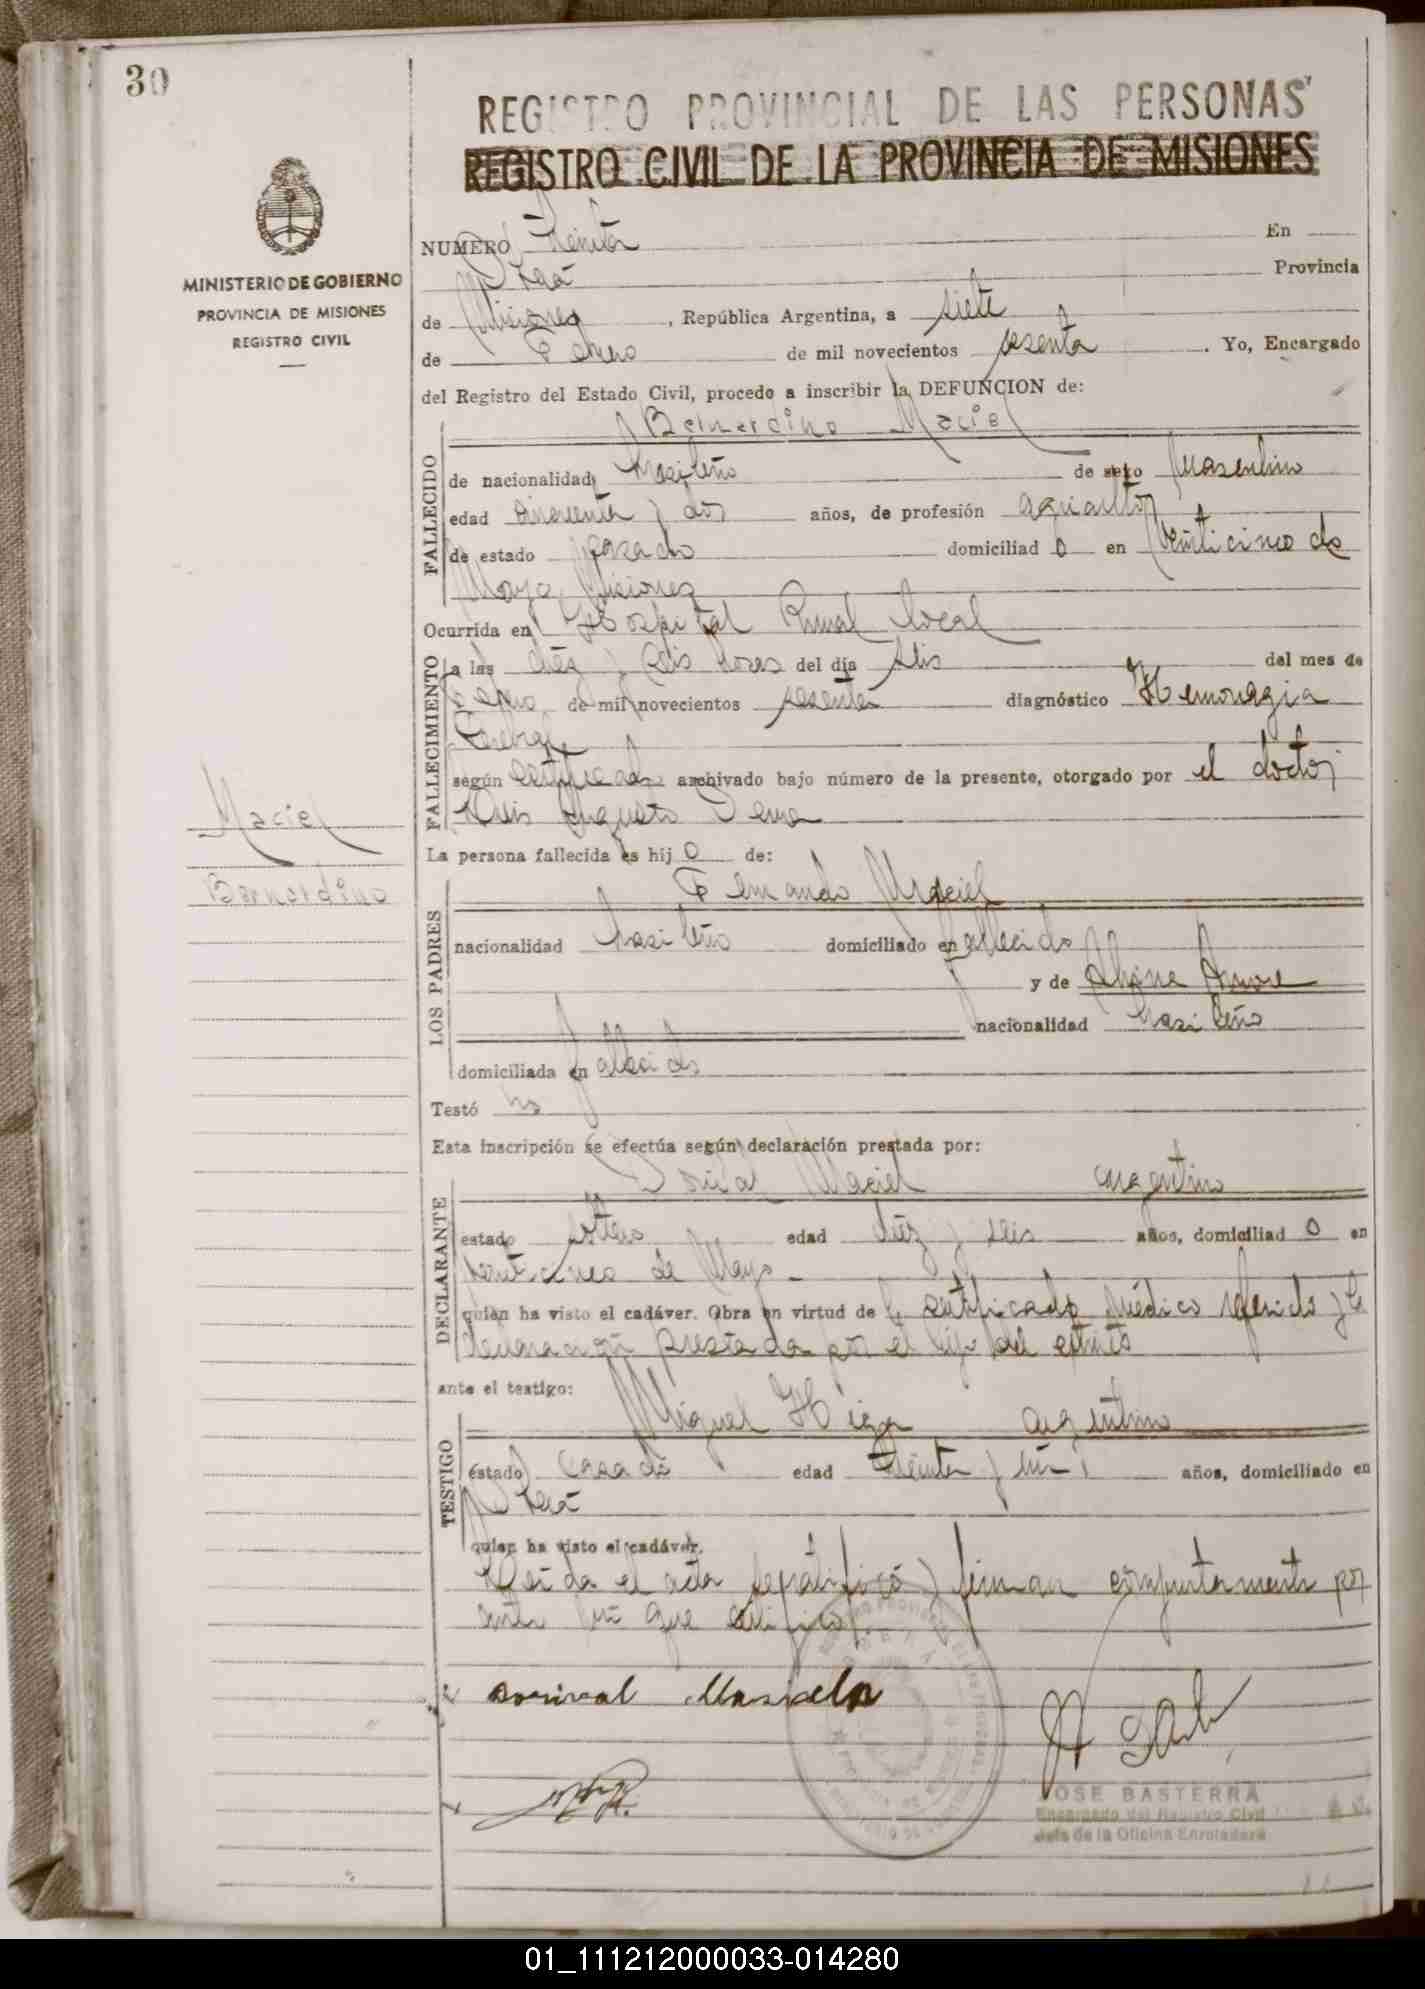 30
REGISTRO PROVINCIAL DE LAS PERSONAS
REGISTRO CIVIL DE LA PROVINCIA DE MISIONES
MINISTERIO DE GOBIERNO
PROVINCIA DE MISIONES
REGISTRO CIVIL
NUMERO Treinta En
Provincia
de Misiones, República Argentina, a siete
de Enero de mil novecientos sesenta. Yo, Encargado
del Registro del Estado Civil, procedo a inscribir la DEFUNCION de:
FALLECIDO
Bernardino Maciel
de nacionalidad brasileño de sexo Masculino
edad cincuenta y dos años, de profesión agricultor
de estado casado domiciliad o en Veinticinco de
Mayo Misiones
Ocurrida en Hospital Rural local
FALLECIMIENTO
a las diéz y seis horas del día seis del mes de
Enero de mil novecientos sesenta diagnóstico Hemorragia
Cerebral
según certificado archivado bajo número de la presente, otorgado por el doctor
Luis Augusto
Maciel
Bernardino
La persona fallecida es hij o de:
LOS PADRES
Fernando Maciel
nacionalidad brasileño domiciliado en fallecido
y de
nacionalidad brasileño
domiciliada en fallecido
Testó no
Esta inscripción se efectúa según declaración prestada por:
DECLARANTE
Maciel argentino
estado soltero edad diéz y seis años, domiciliad o en
Veinticinco de Mayo
quien ha visto el cadáver. Obra en virtud de certificado médico referido y la
declaración prestada por el hijo del extinto
ante el testigo:
TESTIGO
Miguel argentino
estado casado edad treinta y un años, domiciliado en
quien ha visto el cadáver.
Leída el acta se ratificó y firman conjuntamente por
ante mí que certifico.
JOSE BASTERRA
Encargado del Registro Civil
Jefe de la Oficina Enroladora
01_111212000033-014280